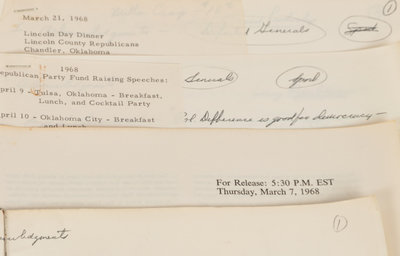 March 21, 1968
Lincoln Day Dinner
Lincoln County Republicans
Chandler, Oklahoma
Generals
1
1968
Republican Party Fund Raising Speeches:
pril 9 - Tulsa, Oklahoma - Breakfast,
Lunch, and Cocktail Party
pril 10 - Oklahoma City - Breakfast
and Lunch
General
Good
Difference is good for democracy -
For Release: 5:30 P.M. EST
Thursday, March 7, 1968
1